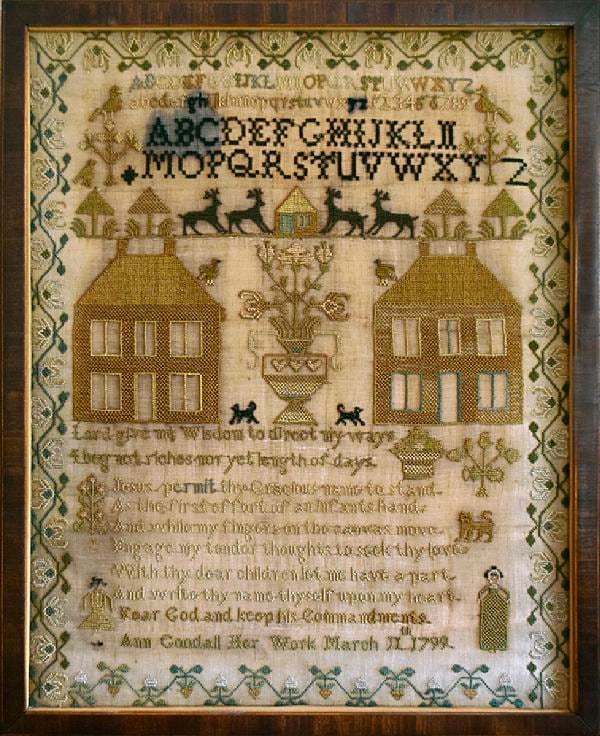 ABCDEFGHIJKLMNOPQRSTUVWXYZ
ABCDEFGHIJKLN
MOPQRSTUVWXYZ
Lord give me Wisdom to direct my ways
I beg not riches nor yet length of days
Jesus permit thy Gracious name to stand
As the first effort of an Infants hand
And while my fingers on the canvas move
Engage my tender thoughts to seek thy love
With thy dear children let me have a part
And write thy name thyself upon my heart
Fear God and keep his Commandments
Ann Goodall Her Work March 11th 1799